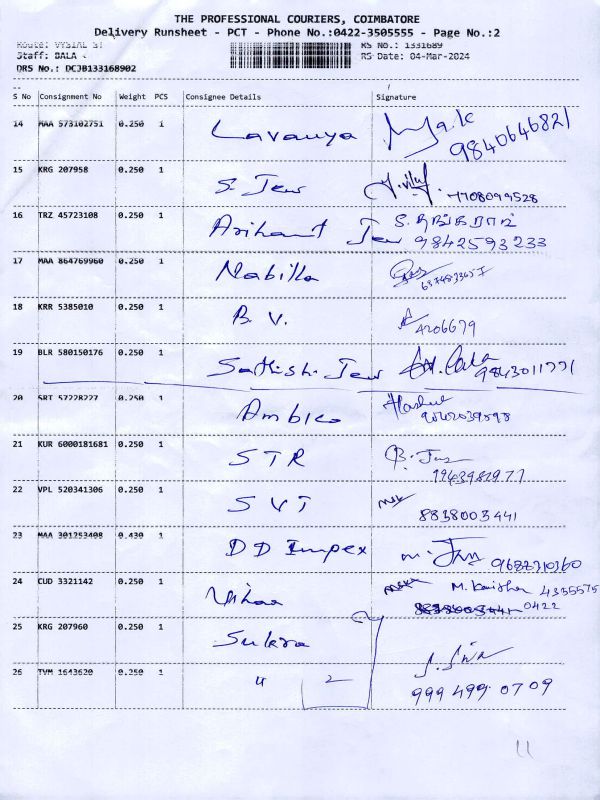 THE PROFESSIONAL COURIERS, COIMBATORE
Delivery Runsheet - PCT - Phone No.:0422-3505555 - Page No.:2
Route: VYSIAL ST RS No.: 1331689
Staff: BALA RS Date: 04-Mar-2024
DRS No.: DCJB133168902
S No Consignment No Weight PCS Consignee Details Signature
14 MAA 573102751 0.250 1 Lavanya 9840646821
15 KRG 207958 0.250 1 S. Jew 7708099528
16 TRZ 45723108 0.250 1 Arihant Jew 9842593233
17 MAA 864769960 0.250 1 Nabilla
18 KRR 5385010 0.250 1 B. V. 4206679
19 BLR 580150176 0.250 1 Sathish. Jew
20 SRT 57228227 0.250 1 Ambica
21 KUR 6000181681 0.250 1 STR
22 VPL 520341306 0.250 1 SVT 8838003441
23 MAA 301253408 0.430 1 DD Impex
24 CUD 3321142 0.250 1 4355575
0422
25 KRG 207960 0.250 1 Sukra
26 TVM 1643620 0.250 1 " 2 999 499 0709
11